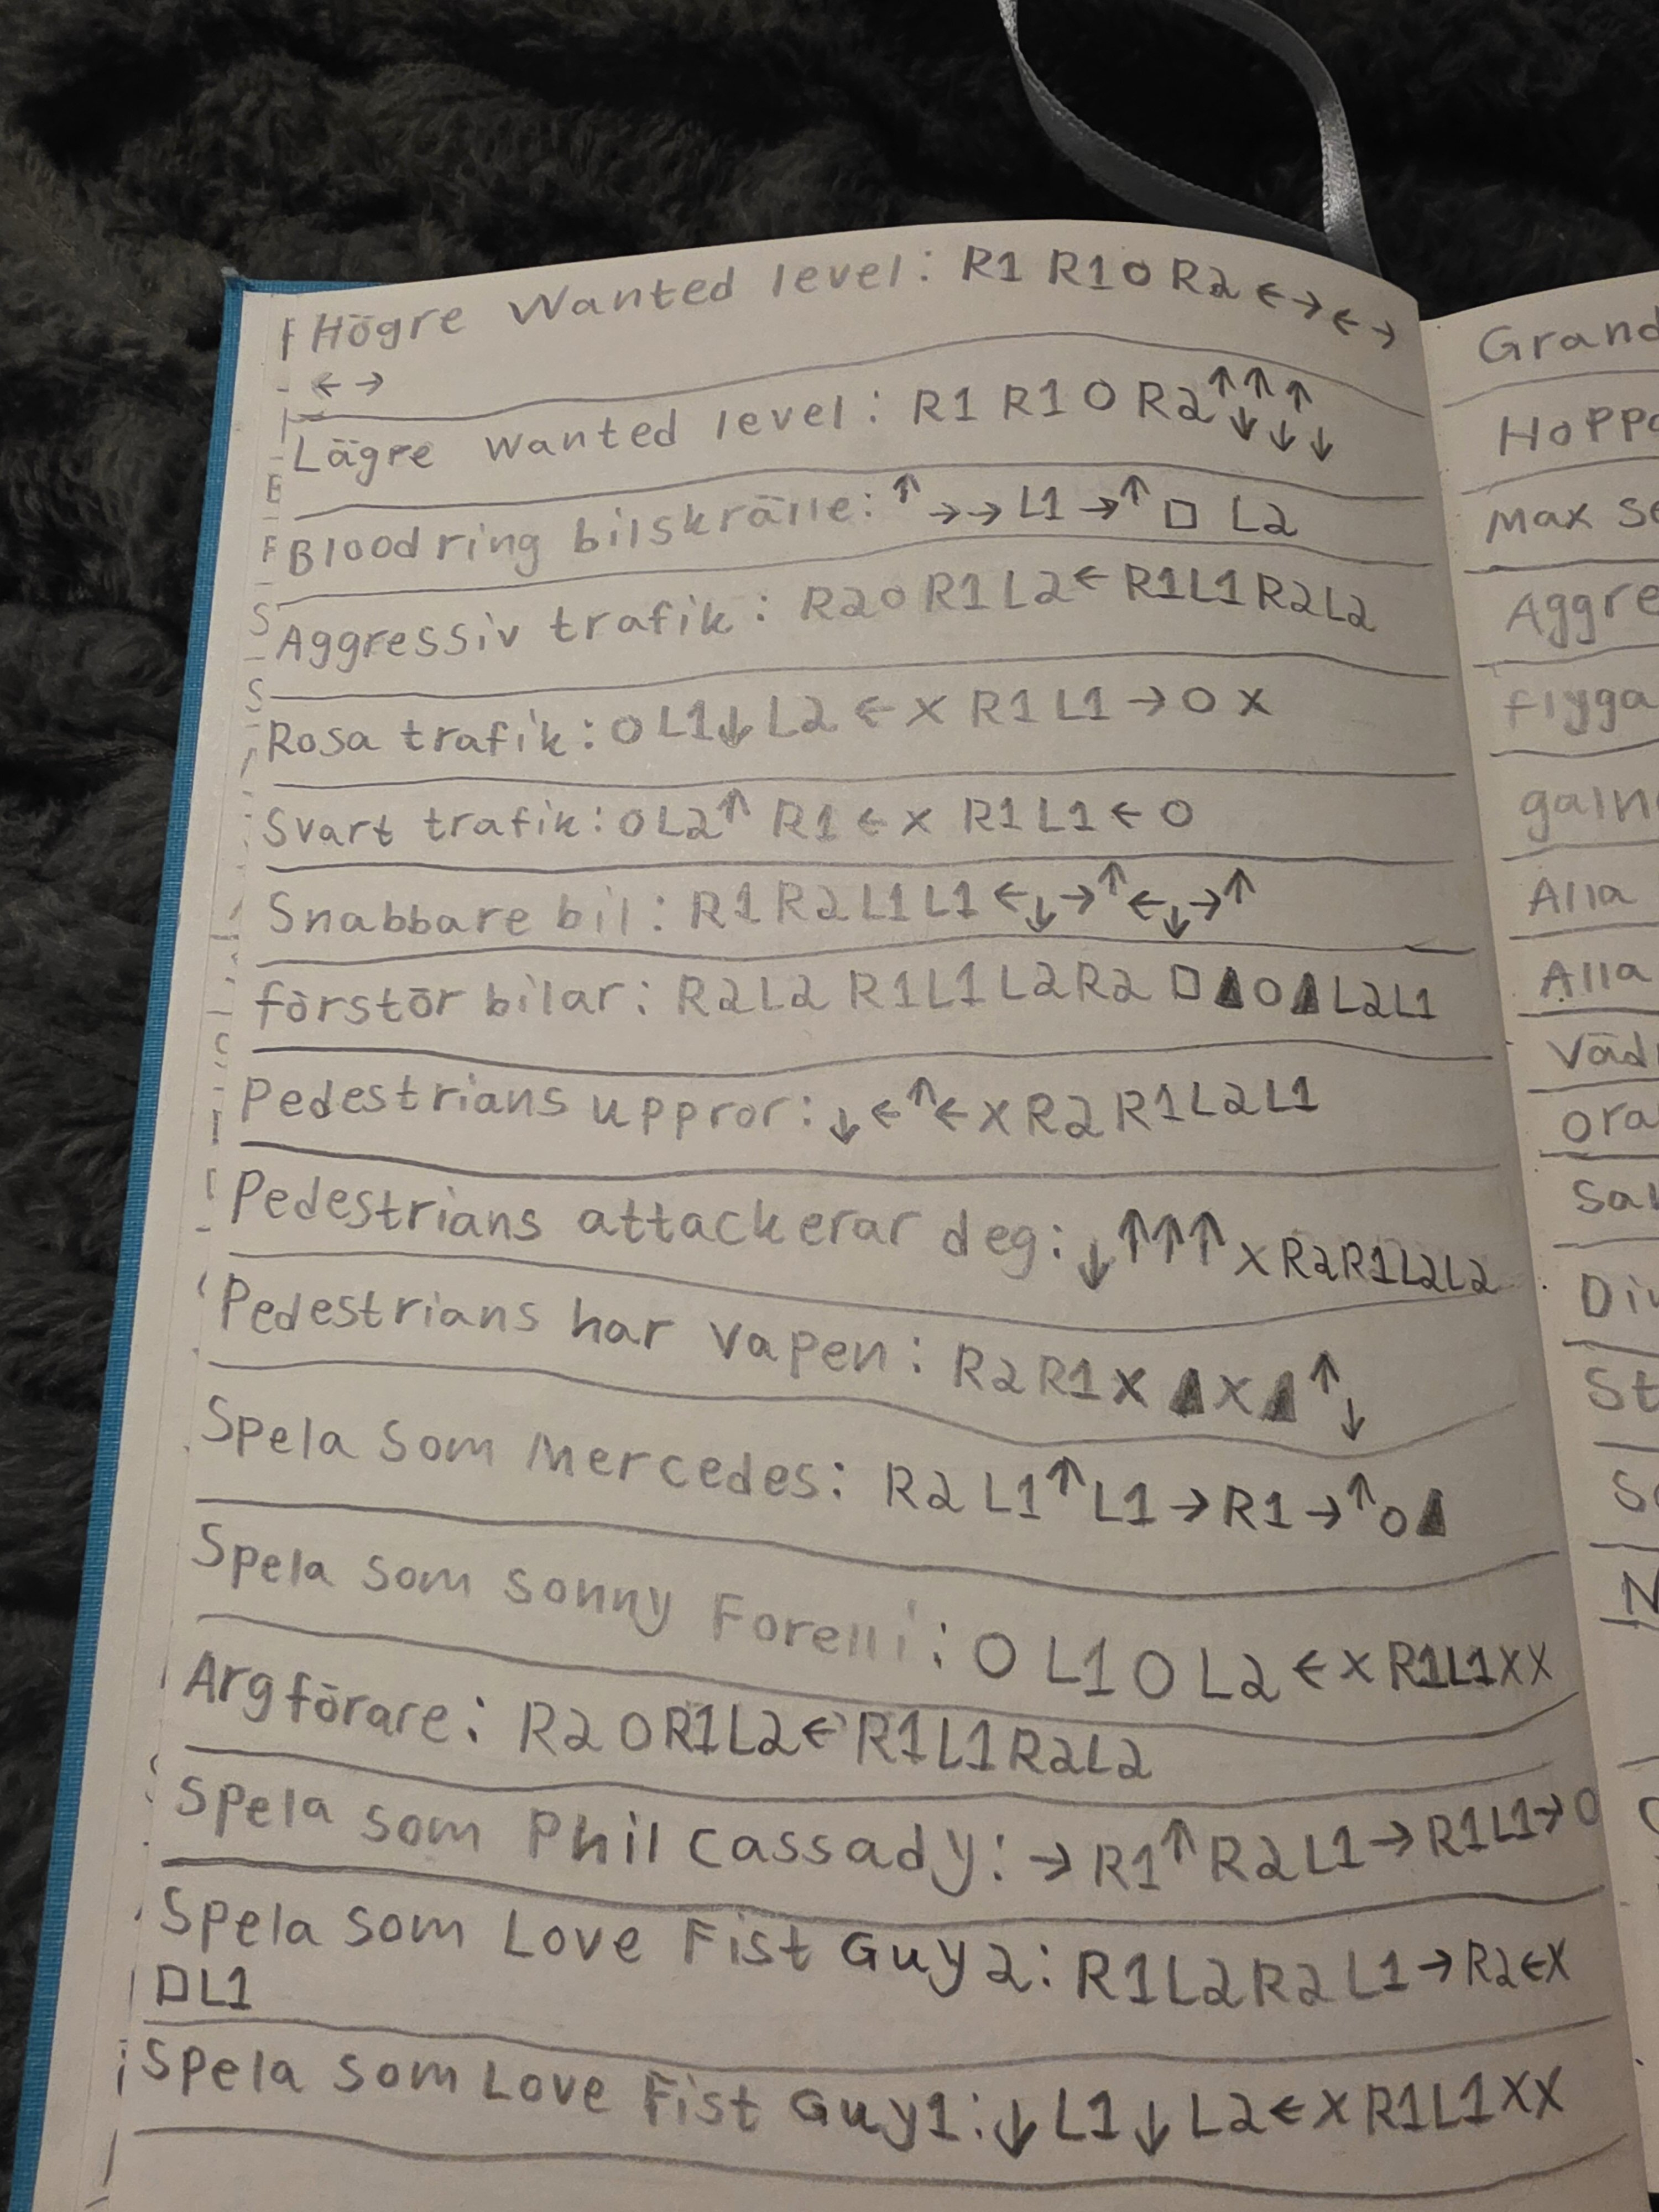 Högre Wanted level: R1 R1 O R2 ← → ← →
← →
Lägre wanted level: R1 R1 O R2 ↑ ↓ ↑ ↓ ↑ ↓
Bloodring bilskrälle: ↑ → → L1 → ↑ □ L2
Aggressiv trafik: R2 O R1 L2 ← R1 L1 R2 L2
Rosa trafik: O L1 ↓ L2 ← X R1 L1 → O X
Svart trafik: O L2 ↑ R1 ← X R1 L1 ← O
Snabbare bil: R1 R2 L1 L1 ← ↓ → ↑ ← ↓ → ↑
förstör bilar: R2 L2 R1 L1 L2 R2 □ ▲ O ▲ L2 L1
Pedestrians uppror: ↓ ← ↑ ← X R2 R1 L2 L1
Pedestrians attackerar deg: ↓ ↑ ↑ ↑ X R2 R1 L2 L2
Pedestrians har vapen: R2 R1 X ▲ X ▲ ↑ ↓
Spela som Mercedes: R2 L1 ↑ L1 → R1 → ↑ O ▲
Spela som sonny Forelli: O L1 O L2 ← X R1 L1 X X
Arg förare: R2 O R1 L2 ← R1 L1 R2 L2
Spela som Phil Cassady: → R1 ↑ R2 L1 → R1 L1 → O
Spela som Love Fist Guy 2: R1 L2 R2 L1 → R2 ← X
□ L1
Spela som Love Fist Guy 1: ↓ L1 ↓ L2 ← X R1 L1 X X
Grand
Hoppa
Max se
Aggre
flyga
Alla
Alla